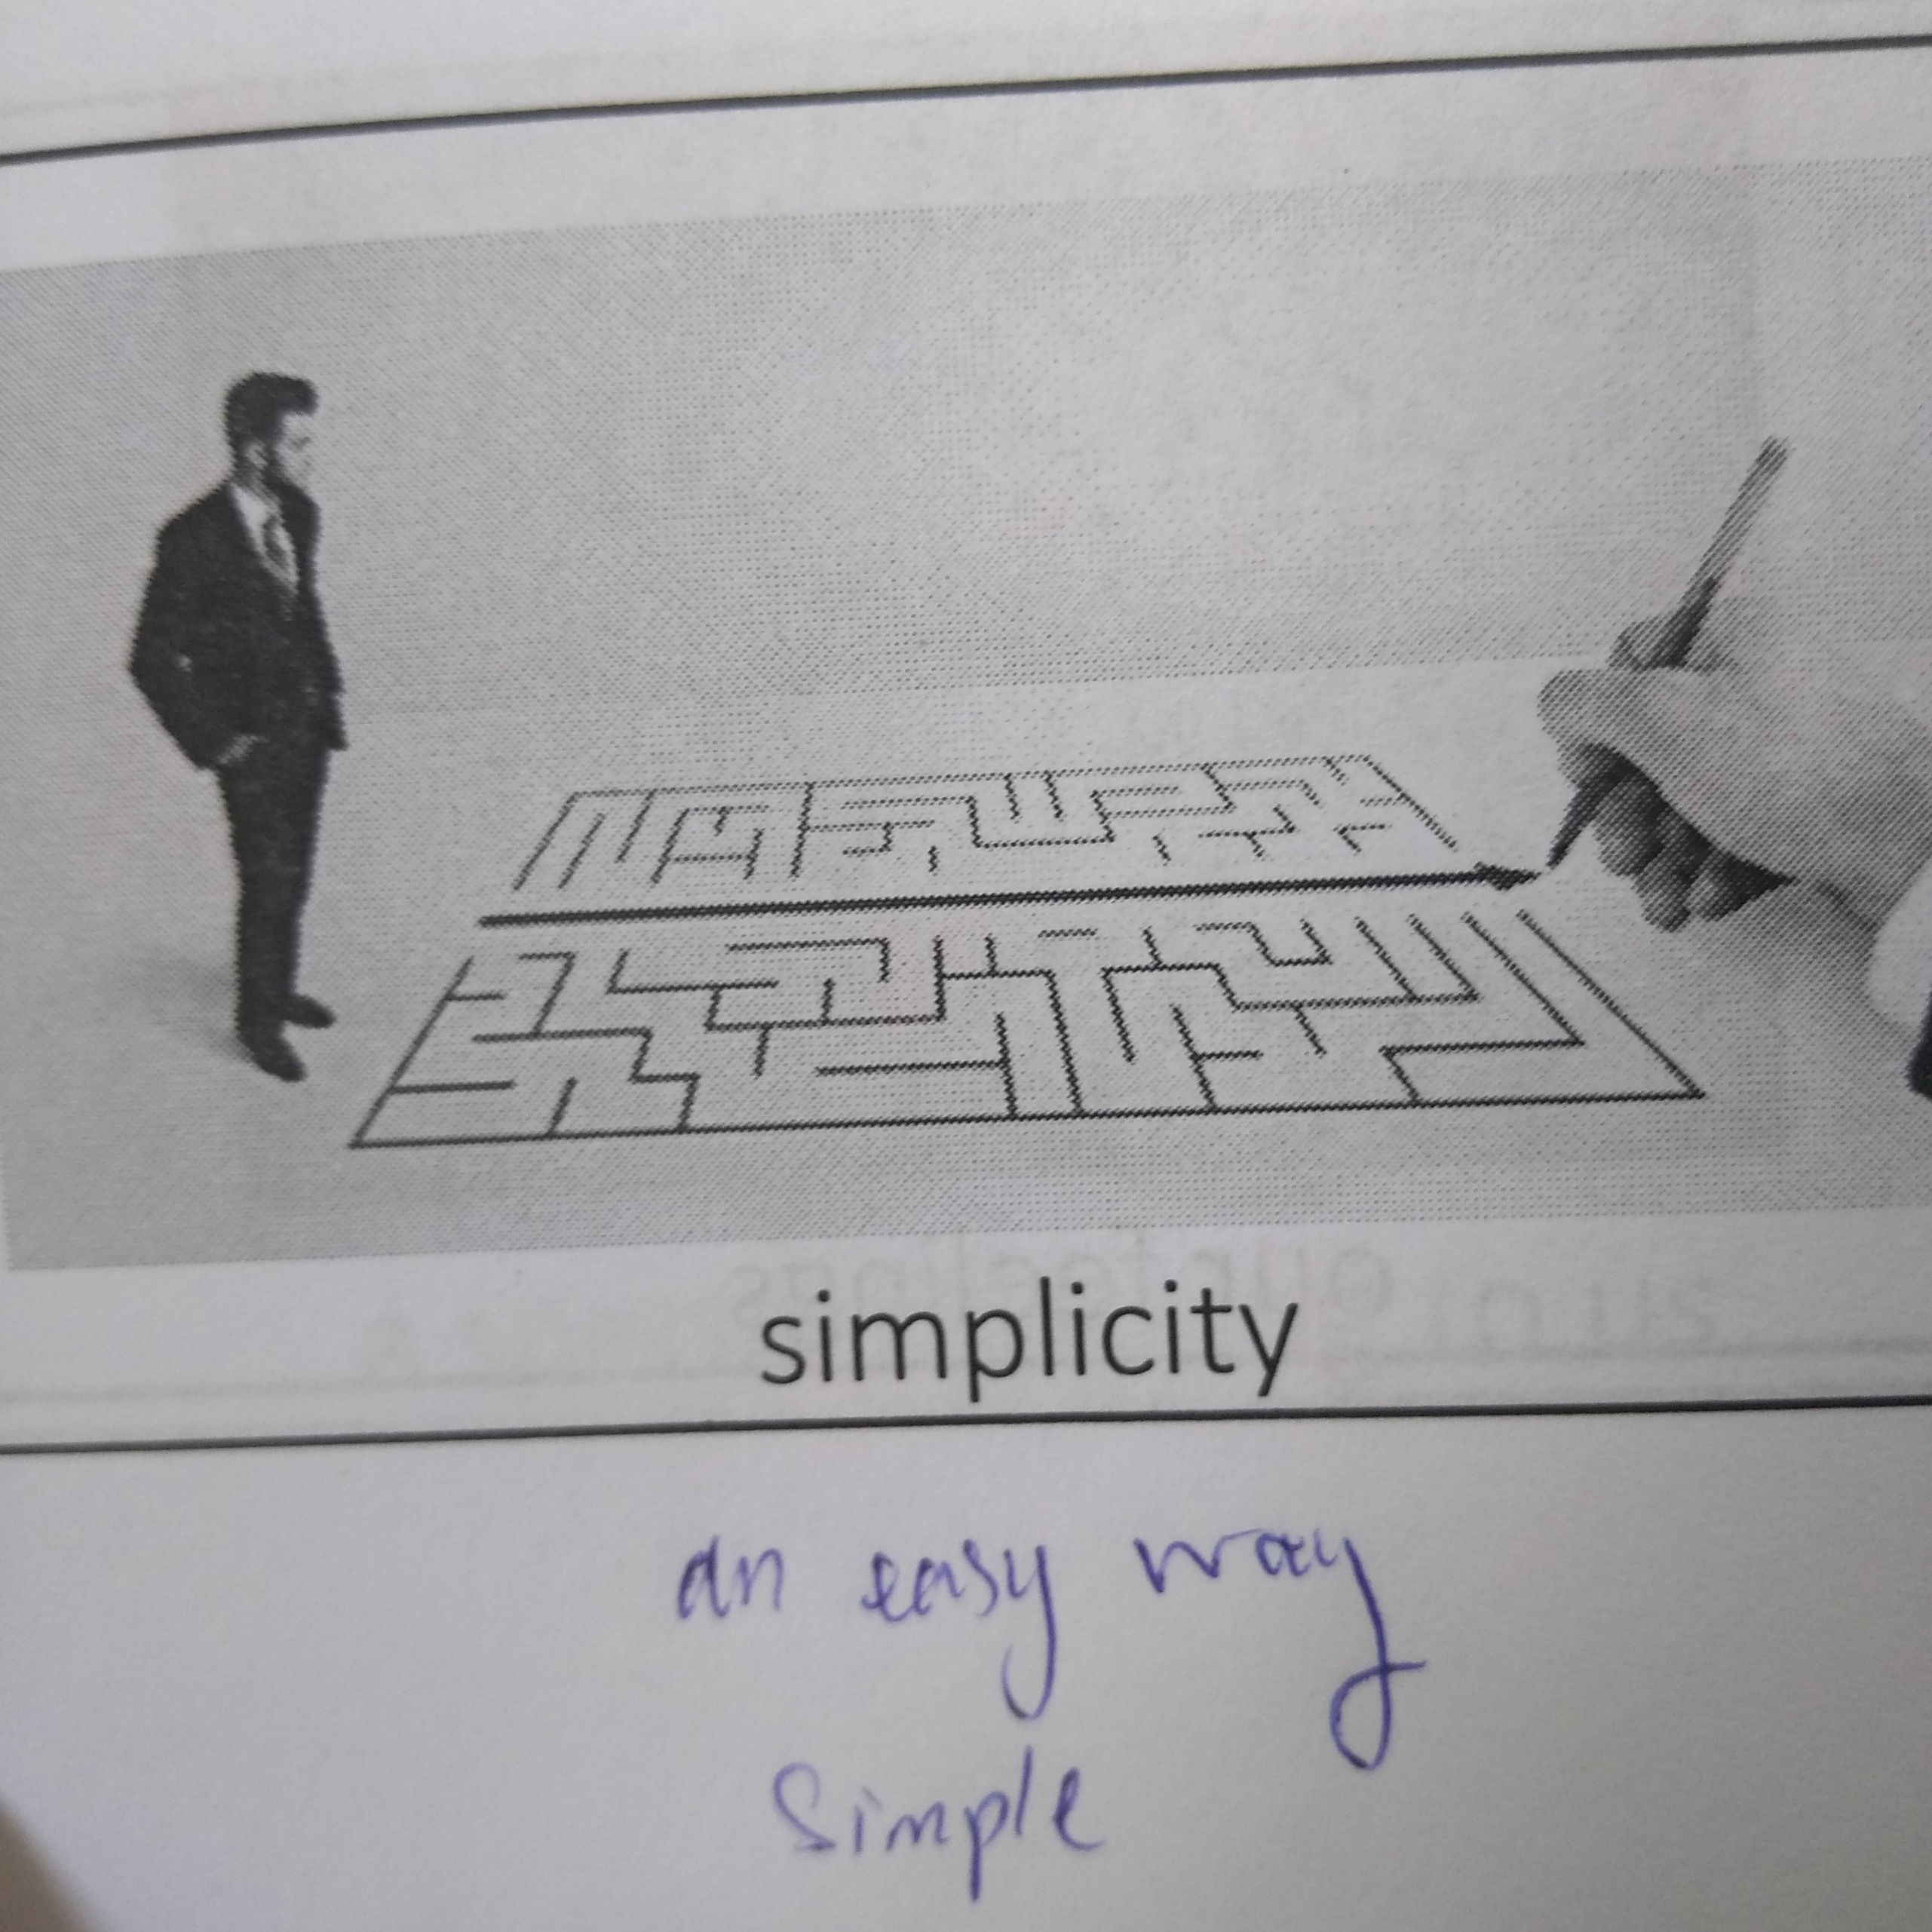 simplicity
an easy way
Simple